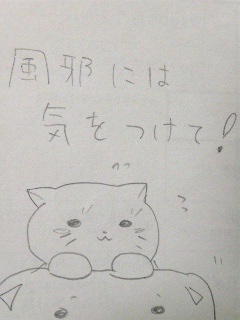 風邪には
気をつけて!